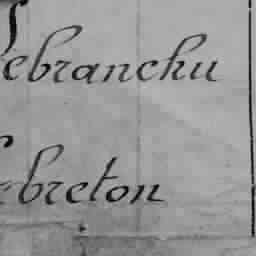 Lebranchu
Lebreton